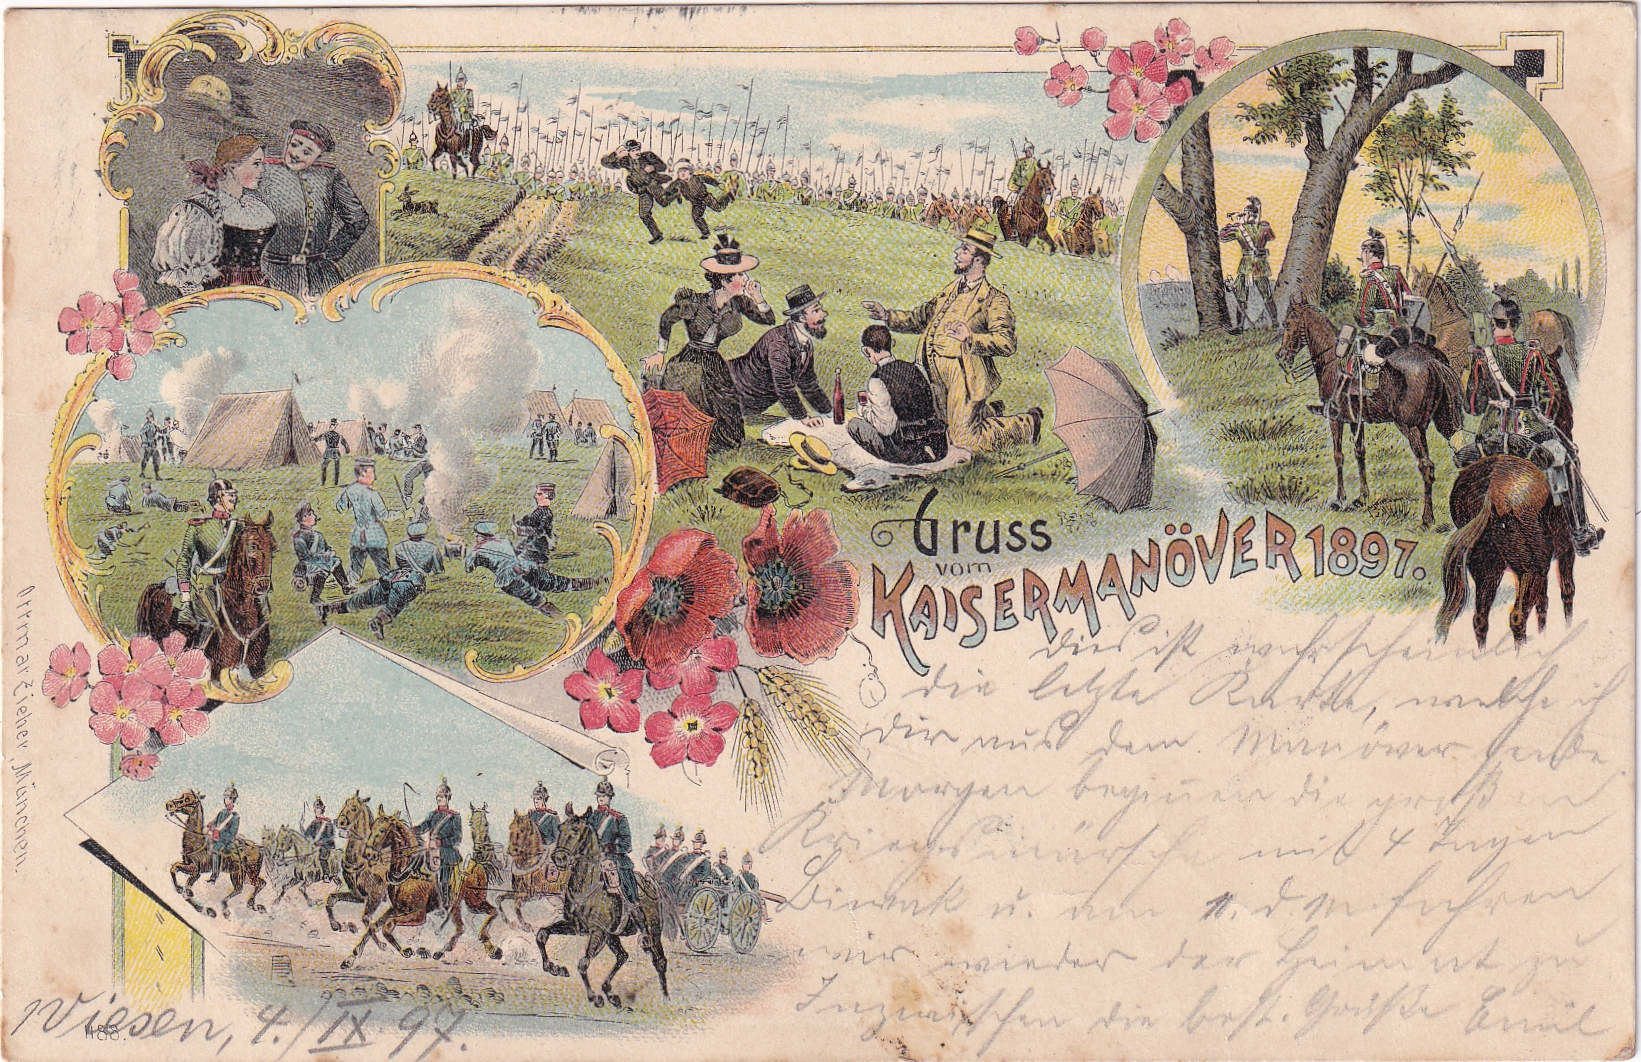 Gruss
vom
KAISERMANÖVER 1897.
Dies ist wahrscheinlich
die letzte Karte, welche ich
dir aus dem Manöver sende.
Morgen beginnen die großen
Kriegsmärsche mit 4 Tagen
Biwak u. am 11. d. M. fahren
wir wieder der Heimat zu
Inzwischen die best. Grüße Emil
Wiesen, 4./IX. 97.
1188.
Ottmar Zieher, München.